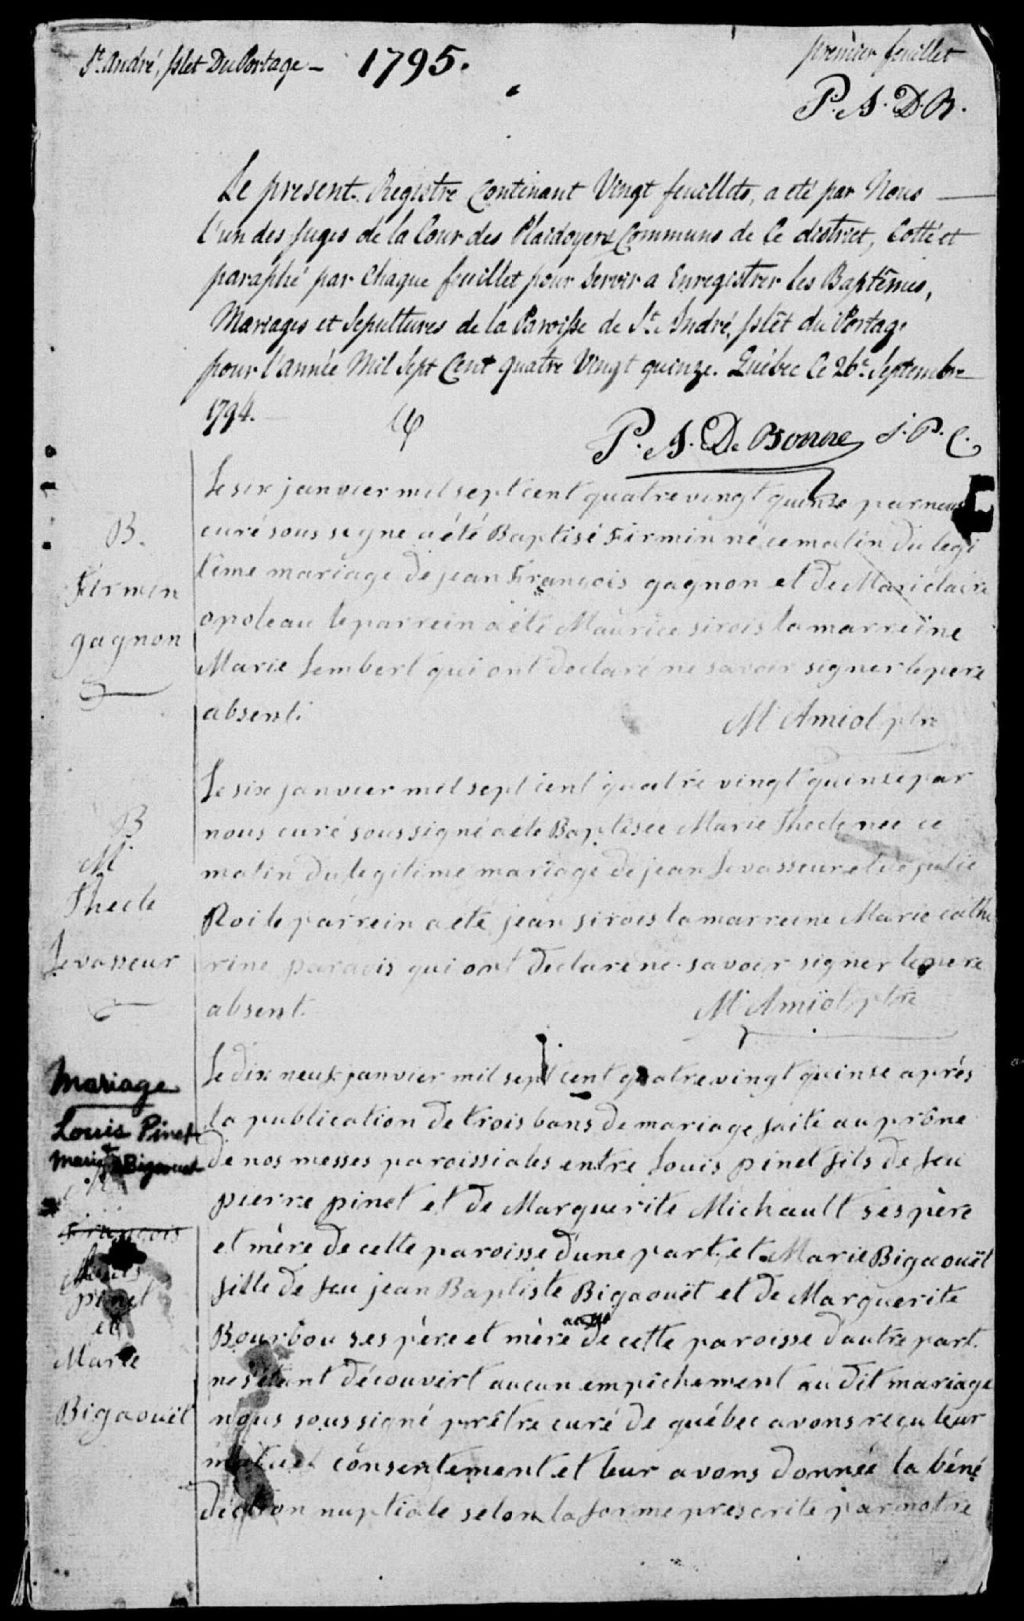 St. André, Islet Du Portage — 1795. premier feuillet
P. A. D. B.
Le present Registre Contenant Vingt feuillets, a eté par Nous
l'un des Juges de la Cour des Plaidoyers Communs de Ce district, Cotté et
paraphé par Chaque feuillet pour Servir a Enregistrer les Baptêmes,
Mariages et Sepultures de la Paroisse de St. André, Islèt du Portage
pour l'année Mil Sept Cent quatre Vingt quinze. Québec Ce 26e. Septembre
1794.
P. A. De Bonne J. P. C.
B.
Firmin
gagnon
Le six janvier mil sept cent quatre vingt quinse par nous
curé sous signe a été Baptisé Firmin né ce matin du legi
time mariage de jean François gagnon et de Marie claire
opoleau le parrein a été Maurice sirois la marreine
Marie Lembert qui ont declaré ne savoir signer le pere
absent.
Mr Amiot ptre
B.
M
Thecle
Levasseur
Le six janvier mil sept cent quatre vingt quinse par
nous curé soussigné a éte Baptisee Marie Thecle nee ce
matin du legitime mariage de jean Levasseur et de julie
Roi le parrein a été jean sirois la marreine Marie cathe
rine paradis qui ont declaré ne savoir signer le pere
absent.
Mr Amiot ptre
Mariage
Louis Pinet
et
Marie Bigaouet
François
Louis
pinet
et
Marie
Bigaouët
Le dix neuf janvier mil sept cent quatre vingt quinse après
la publication de trois bans de mariage faite au prône
de nos messes paroissiales entre Louis pinet fils de feu
pierre pinet et de Marguerite Michault ses père
et mère de cette paroisse d'une part, et Marie Bigaouët
fille de feu jean Baptiste Bigaouët et de Marguerite
Bourbou ses père et mère aussi de cette paroisse d'autre part.
ne s'étant découvert aucun empêchement au dit mariage
nous soussigné prêtre curé de québec avons reçu leur
mutuel consentement et leur avons donnée la béné
diction nuptiale selon la forme prescrite par notre